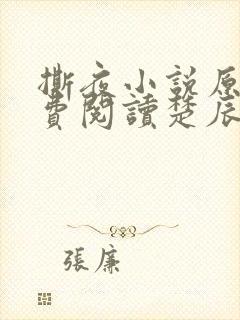 撕夜小説原
費閱讀楚辰
張廉